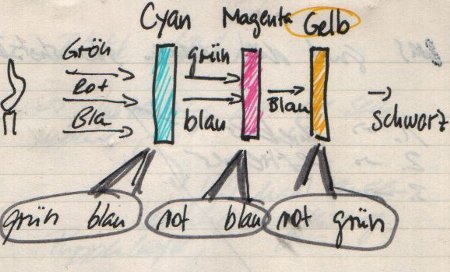 Cyan Magenta Gelb
Grün grün
Rot
Bla blau Blau schwarz
grün blau rot blau rot grün